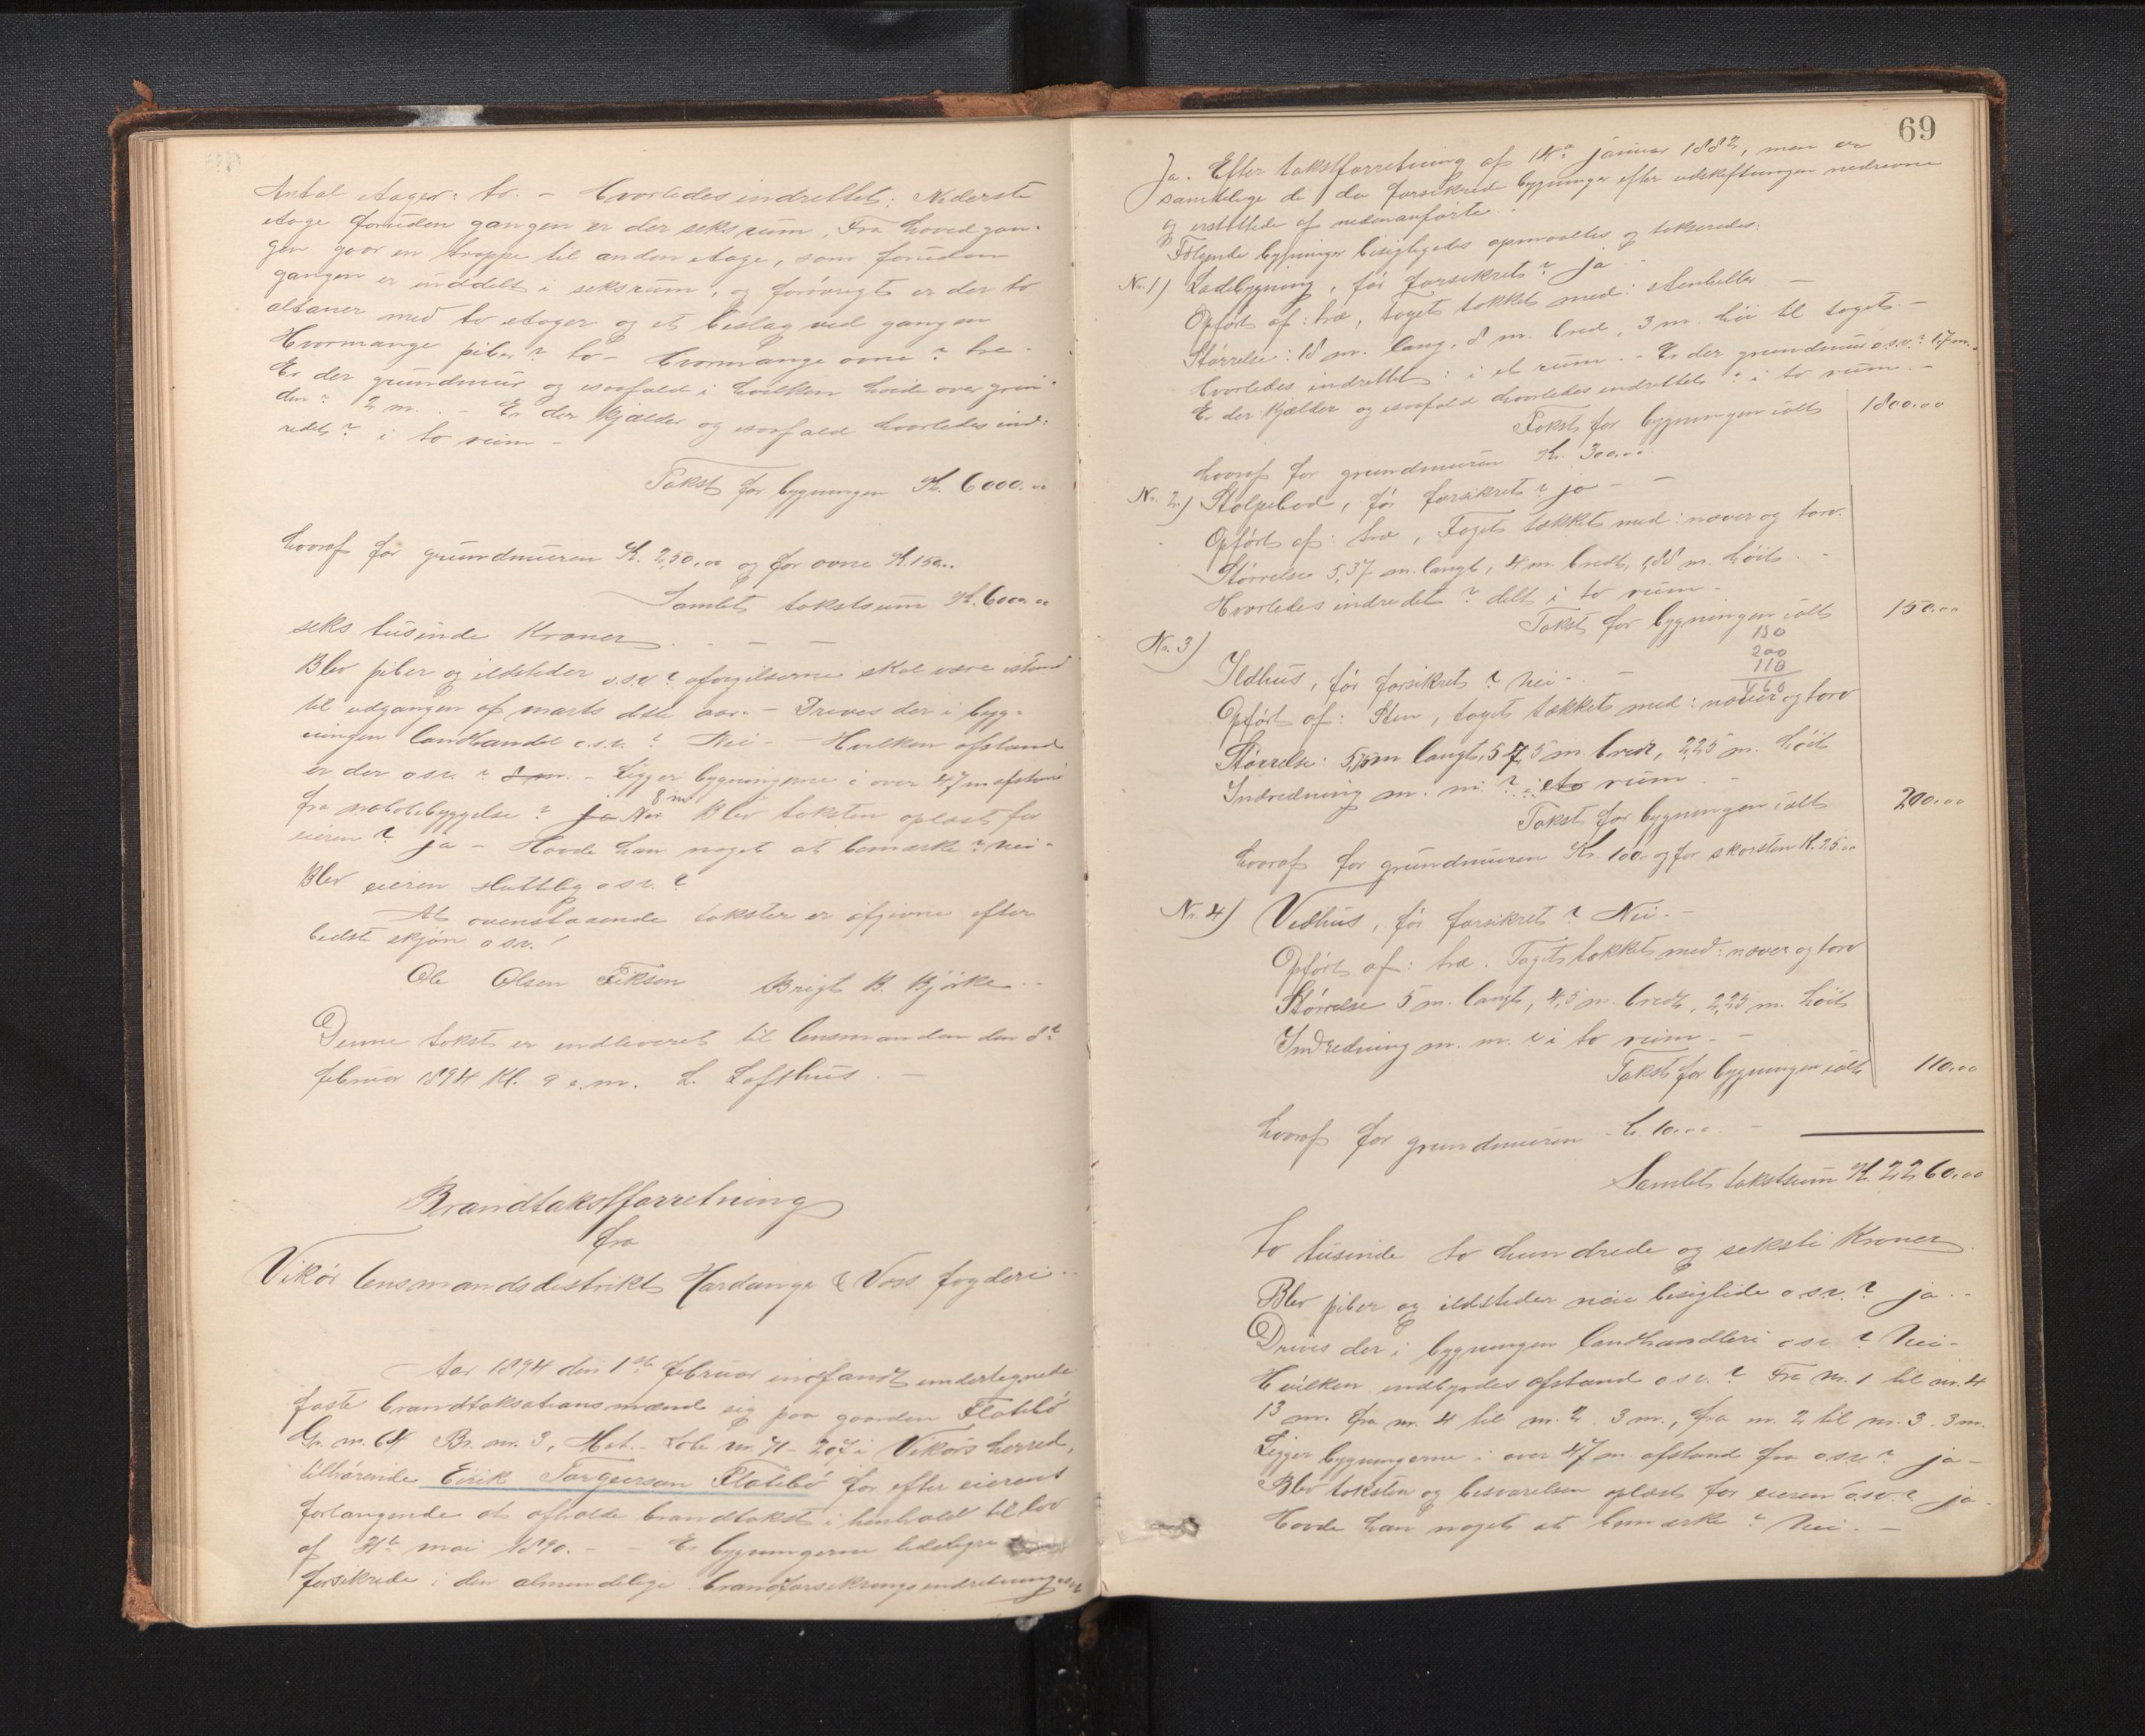 Antal etager: to. - Hvorledes indrettet: Nederste
etage foruden gangen er der seks rum, Fra hovedgan-
gen gaar en trappe til anden etage, som foruden
gangen er inddelt i seks rum, og forövrigt er der to
altaner med to etager og et beslag ved gangen
Hvormange piber? to - Hvormange ovne? tre -
Er der grundmur og isaafald i hvilken höide over grun-
den? 2 m. - Er der kjælder og isaafald hvorledes ind-
redet? i to rum -
Takst for bygningen Kr. 6000.00
hvoraf for grundmuren Kr. 250.00 og for ovne Kr. 150..
Samlet takstsum Kr. 6000.00
seks tusinde Kroner . - -
Blev piber og ildsteder o.s.v? skal være istand
til udgangen af marts dette aar. - Drives der i byg-
ningen landhandel o.s.v.? Nei - - Hvilken afstand
er der o s v? 8 m. - Ligger bygningerne i over 47 m afstand
fra nabobebyggelse? ja Nei 8 m Blev taksten oplæst for
eieren? ja - Havde han noget at bemærke? nei -
Blev eieren sluttelig o s v.?
At ovenstaaende takster er afgivne efter
bedste skjøn o s v.!
Ole Olsen Fiksen Brigt B. Björke . .
Denne takst er indleveret til lensmanden den 8de
februar 1894 Kl. 9 e.m. L. Lofthus . -
Brandtakstforretning
fra
Vikör lensmandsdistrikt Hardanger & Voss fogderi . .
Aar 1894 den 1ste februar indfandt undertegnede
faste brandtaksationsmænd sig paa gaarden Flatebö
Gr. nr. 64 Br. nr. 3, Mat. - Löbe nr. 71 - 207 i Vikörs herred,
tilhörende Eirik Torgeirsen Flatebö for efter eierens
forlangende at afholde brandtakst i henhold til lov
af 31te mai 1890. - - Er bygningerne tidligere
forsikrede i den almindelige brandforsikringsindretning o s v
69
Ja. Efter takstforretning af 14de januar 1882, men er
samtlige de da forsikrede bygninger efter udskiftningen nedrevne
og erstattede af nedenanförte.
Fölgende bygninger besigtigedes opmaaltes og takseredes:
Nr. 1) Ladebygning, för forsikret? ja -
Opfört af: træ, taget tækket med: stenheller -
Störrelse: 18 m. lang, 8 m. bred, 3 m. höi til taget. -
Hvorledes indrettet: i et rum. - Er der grundmur o.s.v.? 1,7 m.
Er der kjælder og isaafald hvorledes indrettet? i to rum -
Takst for bygningen ialt 1800.00
hvoraf for grundmuren Kr. 300.00
Nr. 2) Stolpebod, för forsikret? ja - -
Opfört af: træ, Taget tækket med: næver og torv.
Störrelse 5,37 m. langt, 4 m. bredt, 1,88 m. höit. -
Hvorledes indredet? delt i to rum -
Takst for bygningen ialt 150.00
150
200
110
460
Nr. 3)
Ildhus, för forsikret? nei - -
Opfört af: Sten, taget tækket med: næver og torv
Störrelse: 5,75 m langt, 5 m. bredt, 2,25 m. höit
Indredning m. m.? i to rum -
Takst for bygningen ialt 200.00
hvoraf for grundmuren Kr. 100.- og for skorsten K. 25.00
Nr. 4) Vedhus, för forsikret? Nei. -
Opfört af: træ. Taget tækket med: næver og torv
Störrelse 5 m. langt, 4,5 m. bredt, 2,25 m. höit
Indredning m. m.? i to rum. -
Takst for bygningen ialt 110.00
hvoraf for grundmuren K. 10.00. -
Samlet takstsum Kr. 2260.00
to tusinde to hundrede og seksti Kroner.
Blev piber og ildsteder nöie besigtiede o s v.? ja . .
Drives der i bygningen landhandleri o s v.? Nei -
Hvilken indbyrdes afstand o s v.? Fra nr. 1 til nr. 4
13 m. fra nr. 4 til nr. 2 3 m., fra nr. 2 til nr. 3. 3 m.
Ligger bygningerne i over 47 m. afstand fra o s v? ja -
Blev taksten og besvarelsen oplæst for eieren o.s.v.? ja -
Havde han noget at bemærke? Nei. -